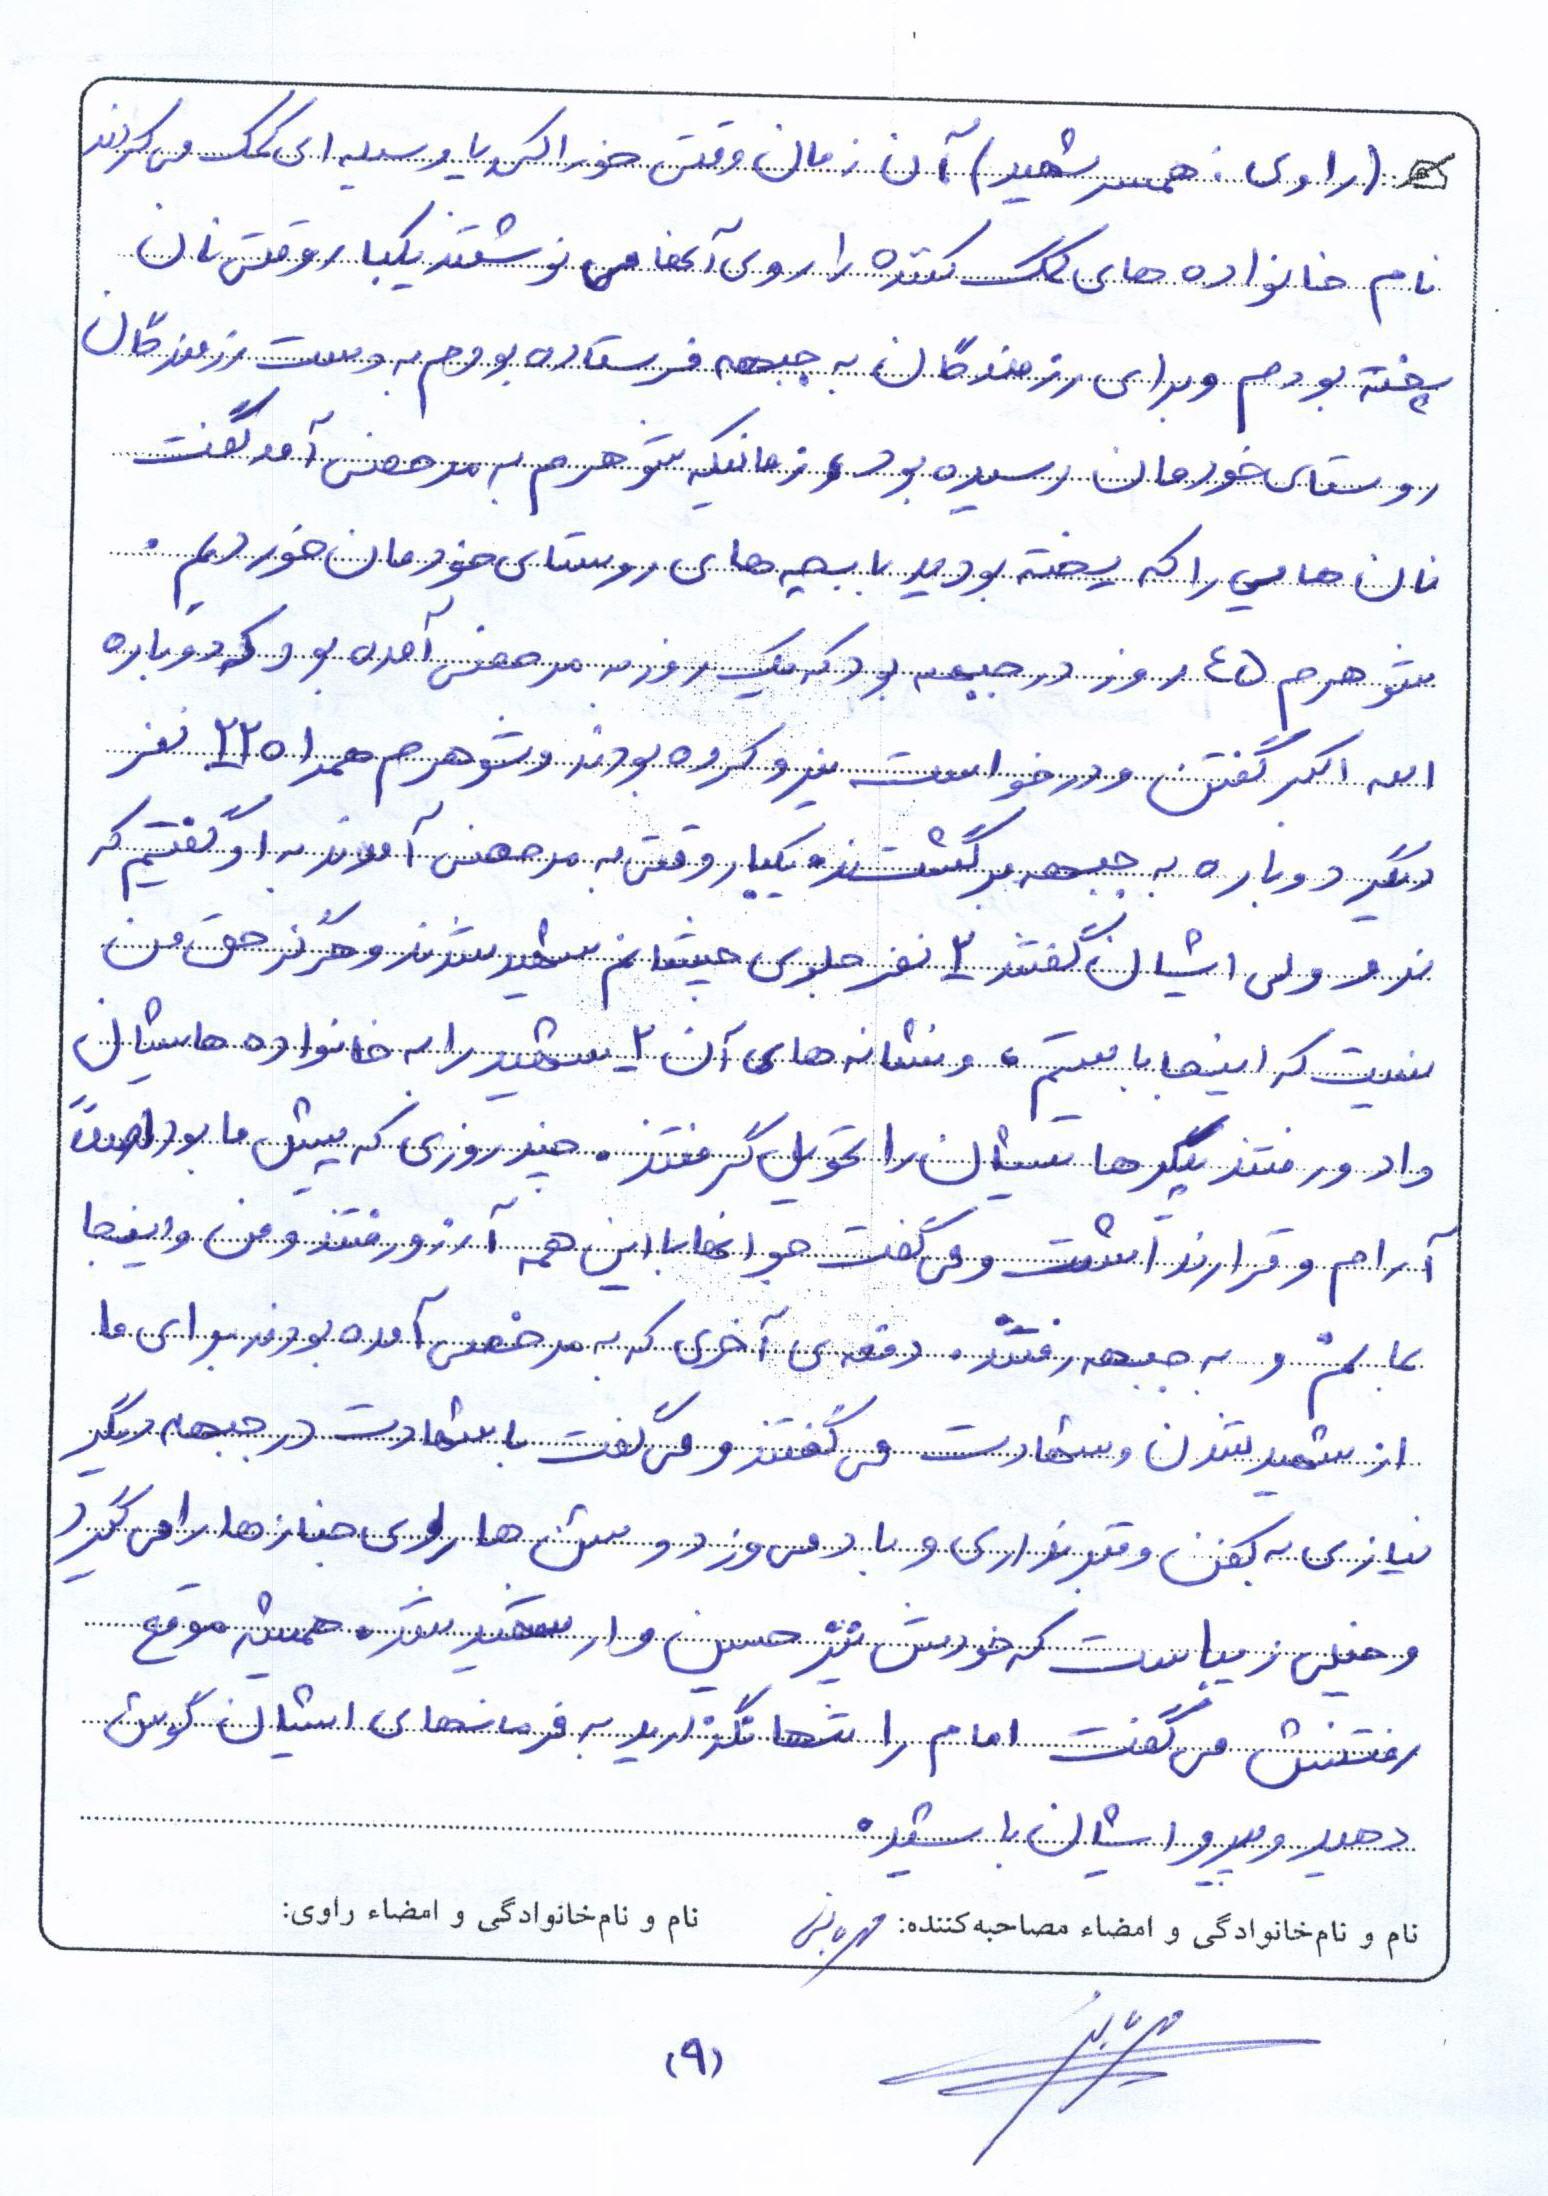 (راوی: همسر شهید) آن زمان وقتی خوراکی یا وسیله ای کمک می کردند
نام خانواده های کمک کننده را روی آنها می نوشتند یکبار وقتی نان
پخته بودم وبرای رزمندگان به جبهه فرستاده بودم به دست رزمندگان
روستای خودمان رسیده بود، زمانیکه شوهرم به مرخصی آمد گفت
نان هایی را که پخته بودید با بچه های روستای خودمان خوردیم.
شوهرم ٤٥ روز در جبهه بود که یک روز به مرخصی آمده بود که دوباره
الله اکبر گفتن و درخواست نیرو کرده بودند و شوهرم همراه ٢٢ نفر
دیگر دوباره به جبهه برگشتند. یکبار وقتی به مرخصی آمدند به او گفتیم که
نرو ولی ایشان گفتند ٢ نفر جلوی چشمانم شهید شدند و هرگز حق من
نیست که اینجا بایستم، و نشانه های آن ٢ شهید را به خانواده هایشان
داد و رفتند پیکرهایشان را تحویل گرفتند. چند روزی که پیش ما بود اصلاً
آرام و قرار نداشت و می گفت جوانها با این همه آرزو رفتند و من و اینجا
بمانم و به جبهه رفتند. دفعه ی آخری که به مرخصی آمده بودند برای ما
از شهید شدن و شهادت می گفتند و می گفت با شهادت در جبهه دیگر
نیازی به کفن و قبر نداری و باد می وزد و شن ها روی جنازها را می گیرد
و خیلی زیباست که خودش نیز حسین وار شهید شد. همیشه موقع
رفتنش می گفت امام را تنها نگذارید به فرمانهای ایشان گوش
دهید و پیرو ایشان باشید.
نام و نام‌خانوادگی و امضاء مصاحبه‌کننده: نام و نام‌خانوادگی و امضاء راوی:
(٩)